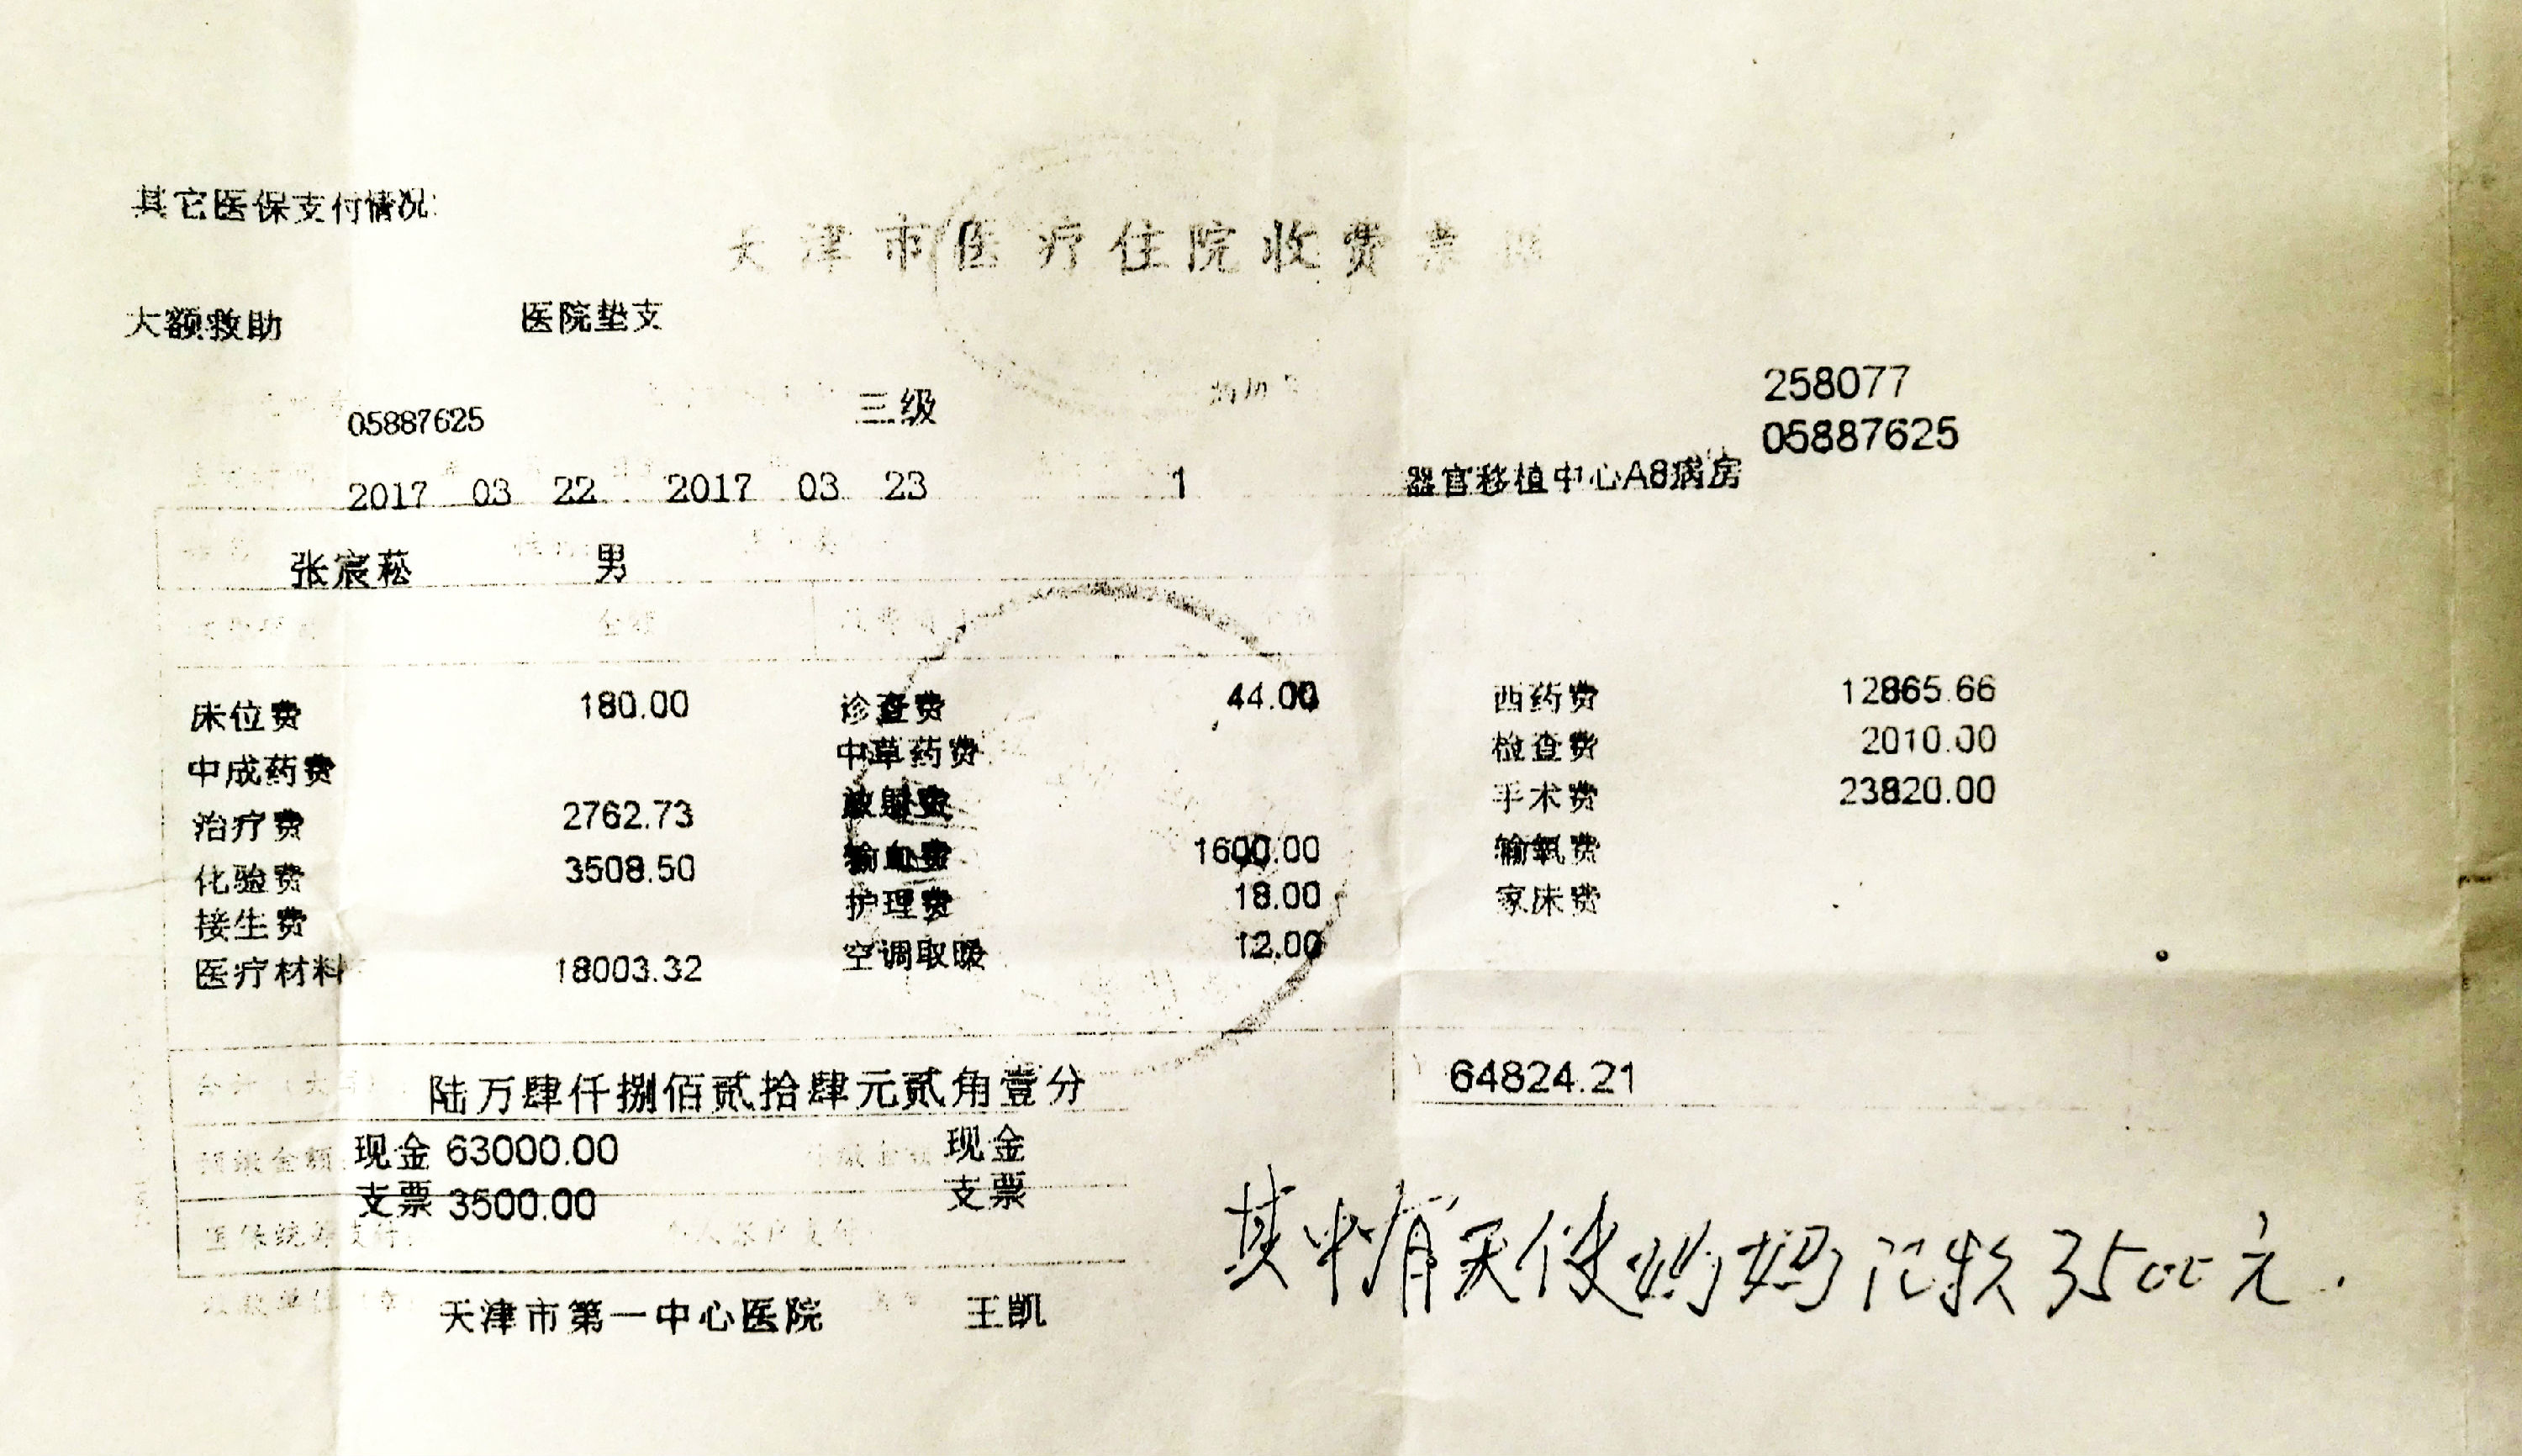 其它医保支付情况:
天津市医疗住院收费票据
大额救助 医院垫支
258077
05887625 三级 05887625
2017 03 22 2017 03 23 1 器官移植中心A8病房
张宸菘 男
金额
床位费 180.00 诊查费 44.00 西药费 12865.66
中成药费 中草药费 检查费 2010.00
治疗费 2762.73 放射费 手术费 23820.00
化验费 3508.50 输血费 1600.00 输氧费
接生费 护理费 18.00 家床费
医疗材料 18003.32 空调取暖 12.00
合计(大写) 陆万肆仟捌佰贰拾肆元贰角壹分 64824.21
预缴金额 现金 63000.00 现金
支票 3500.00 支票
医保统筹支付: 个人账户支付
天津市第一中心医院 王凯
其中有天使妈妈汇款3500元.